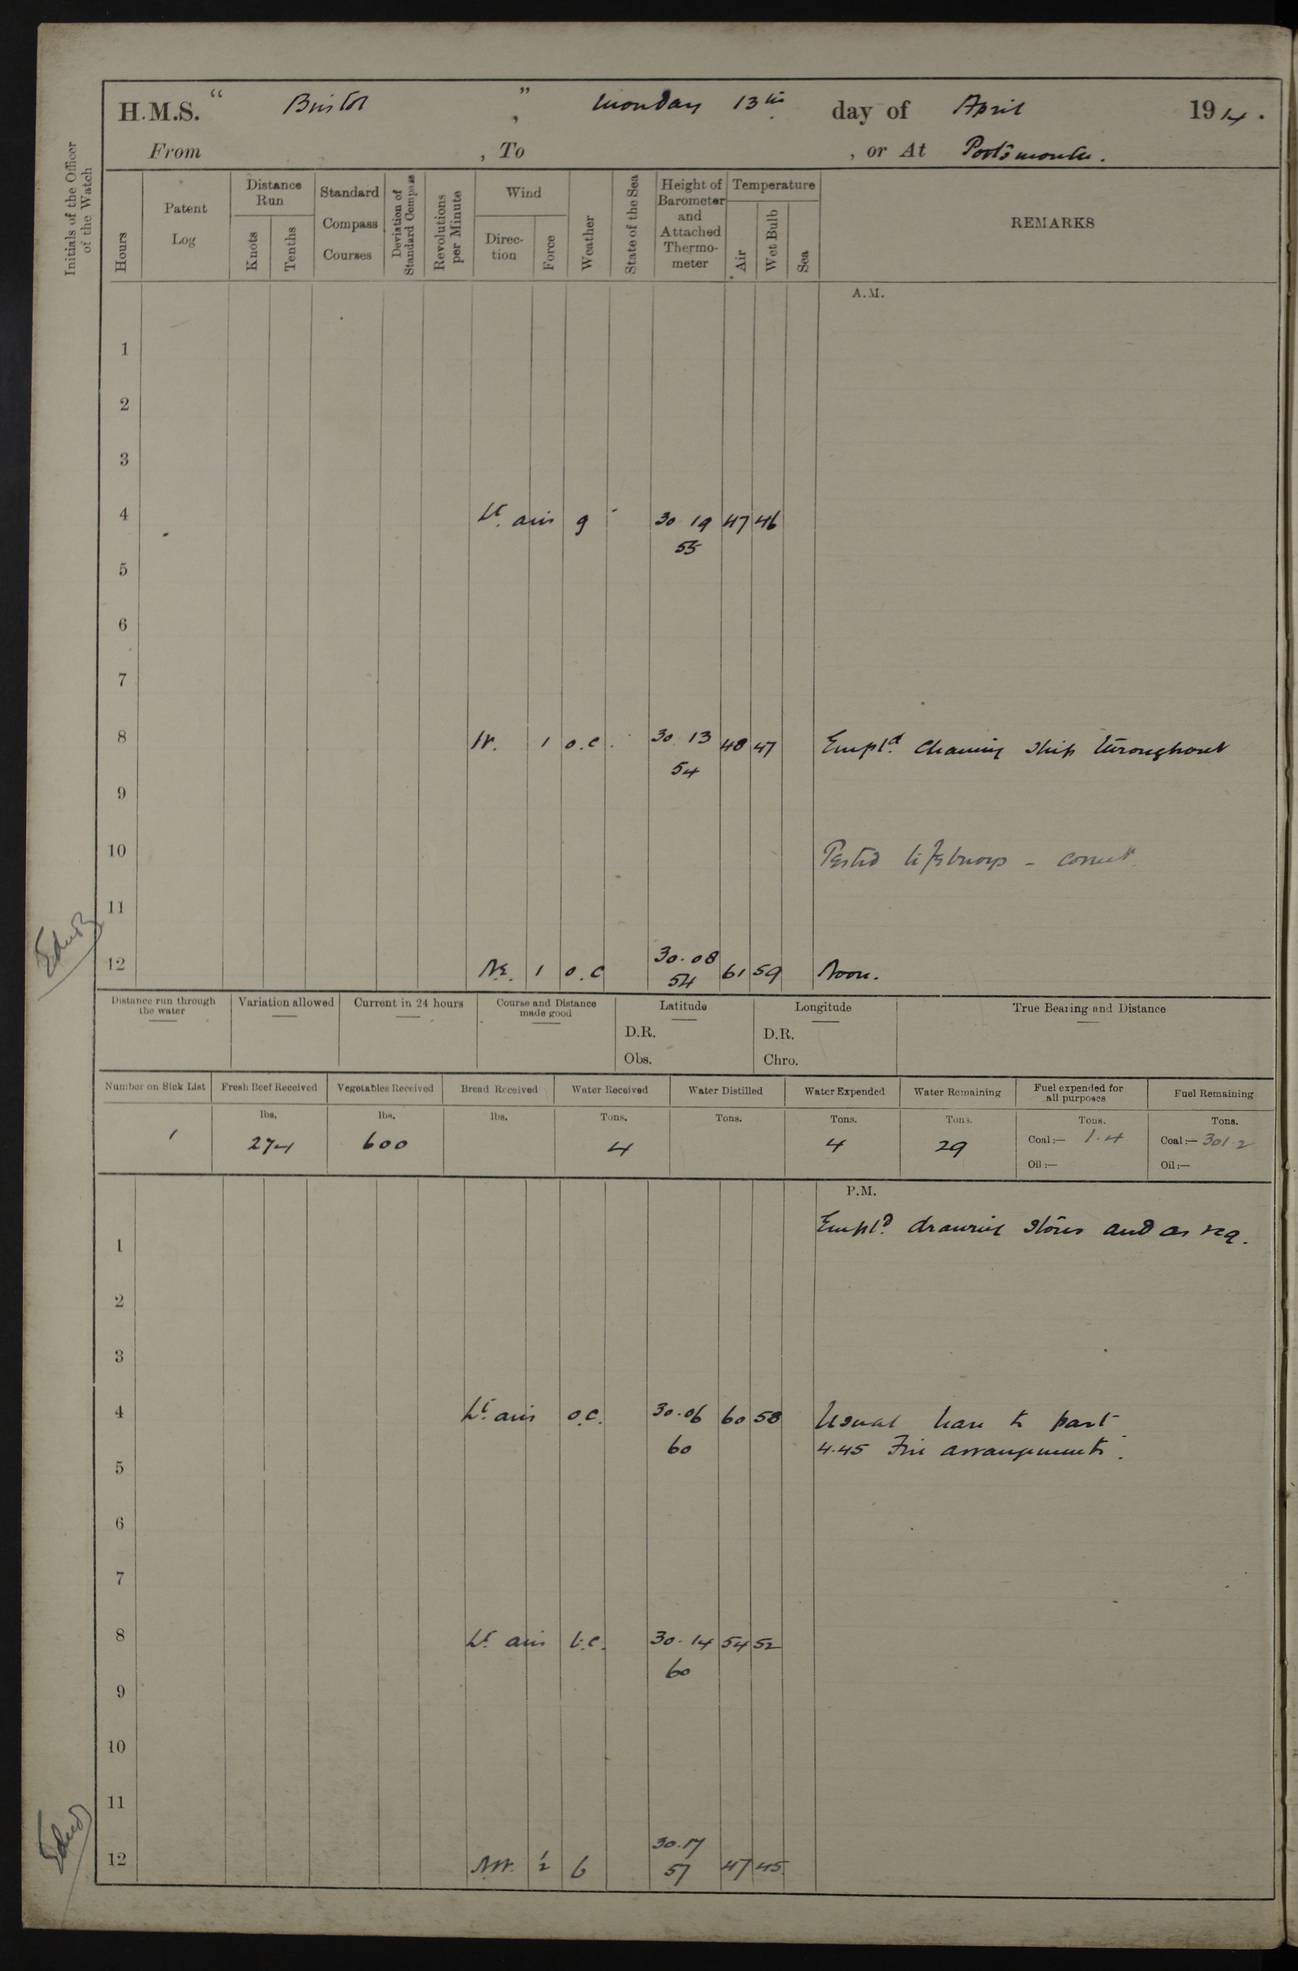 H.M.S. " Bristol ", Monday 13th day of April 1914.
From , To , or At Portsmouth.
Initials of the Officer of the Watch
Hours
Patent Log
Distance Run
Knots
Tenths
Standard Compass Courses
Deviation of Standard Compass
Revolutions per Minute
Wind
Direction
Force
Weather
State of the Sea
Height of Barometer and Attached Thermometer
Temperature
Air
Wet Bulb
Sea
REMARKS
A.M.
1
2
3
4 Lt. airs g 30.19 47 46
55
5
6
7
8 W. 1 o.c. 30.13 48 47 Empld. cleaning ship throughout
54
9
10 Tested lifebuoys - correct
11
12 NE. 1 o.c 30.08 61 59 Noon.
54
Distance run through the water
Variation allowed
Current in 24 hours
Course and Distance made good
Latitude
D.R.
Obs.
Longitude
D.R.
Chro.
True Bearing and Distance
Number on Sick List
1
Fresh Beef Received
lbs.
274
Vegetables Received
lbs.
600
Bread Received
lbs.
Water Received
Tons.
4
Water Distilled
Tons.
Water Expended
Tons.
4
Water Remaining
Tons.
29
Fuel expended for all purposes
Tons.
Coal:— 1.4
Oil:—
Fuel Remaining
Tons.
Coal:— 301.2
Oil:—
P.M.
Empld. drawing stores and as req.
1
2
3
4 Lt. airs o.c. 30.06 60 58 Usual leave to part
60 4.45 Fire arrangements.
5
6
7
8 Lt. airs b.c. 30.14 54 52
60
9
10
11
12 NW. ½ b 30.17 47 45
57